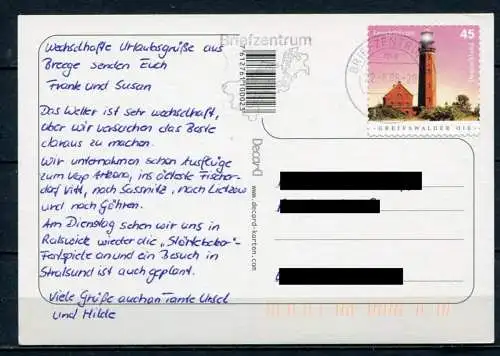 Wechselhafte Urlaubsgrüße aus
Breege senden Euch
Frank und Susan
Das Wetter ist sehr wechselhaft,
aber wir versuchen das Beste
daraus zu machen.
Wir unternahmen schon Ausflüge
zum Kap Arkona, ins älteste Fischer-
dorf Vitt, nach Sassnitz, nach Lietzow
und nach Göhren.
Am Dienstag sehen wir uns in
Ralswiek wieder die „Störtebeker"-
Festspiele an und ein Besuch in
Stralsund ist auch geplant.
Viele Grüße auch an Tante Ursel
und Hilde
Briefzentrum
7612761100023
Decor-D
www.decord-karten.com
BRIEFZENTRUM
45
Deutschland
GREIFSWALDER OIE